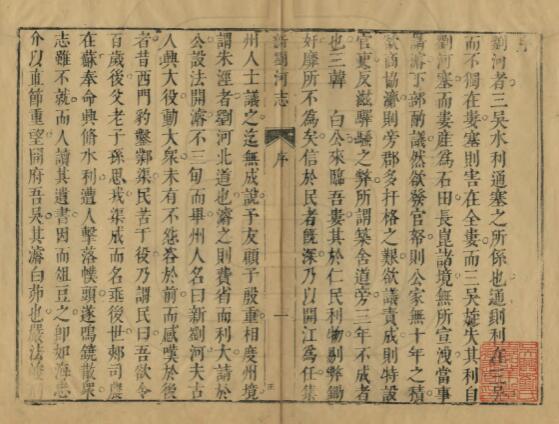 序
劉河者三吳水利通塞之所係也通則利在三吳
而不獨在婁塞則害在全婁而三吳旋失其利自
劉河塞而婁產為石田長崑諸境無所宣洩當事
請濬下部酌議然欲發官帑則公家無十年之積
欲商協濬則旁郡多扞格之艱欲議責成則特設
官吏反滋驛騷之弊所謂築舍道旁三年不成者
也三韓　白公來臨吾婁其於仁民利物剔弊鋤
奸靡所不為矣信於民者既深乃以開江為任集
新劉河志　序　一
州人士議之迄無成說予友顧子殷重相度州境
謂朱涇者劉河北道也濬之則費省而利大請於
公設法開濬不三旬而畢州人名曰新劉河夫古
人興大役動大眾未有不怨咨於前而感嘆於後
者昔西門豹鑿鄴渠民苦于役乃謂民曰吾欲令
百歲後父老子孫思我渠成而名垂後世郟司農
在蘇奉命興修水利遭人擊落幞頭遂鳴鐃散眾
志雖不就而人讀其遺書因而俎豆之即如海忠
介以直節重望開府吾吳其濬白茆也嚴法